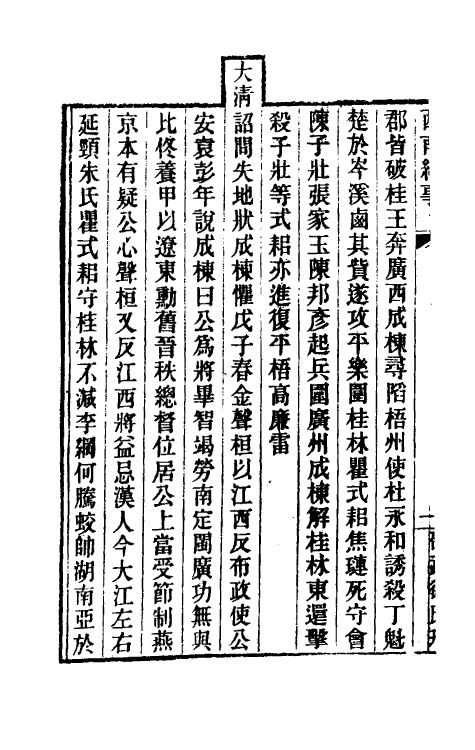 郡皆破桂王奔廣西成棟尋䧟梧州使杜永和誘殺丁魁
楚於岑溪鹵其貲遂攻平樂圍桂林瞿式耜焦璉死守會
陳子壯張家玉陳邦彥起兵圍廣州成棟解桂林東還擊
殺子壯等式耜亦進復平梧高廉雷
大清
詔問失地狀成棟懼戊子春金聲桓以江西反布政使公
安袁彭年說成棟曰公爲將畢智竭勞南定閩廣功無與
比佟養甲以遼東勳舊晉秩總督位居公上當受節制燕
京本有疑公心聲桓又反江西將益忌漢人今大江左右
延頸朱氏瞿式耜守桂林不減李綱何騰蛟帥湖南亞於